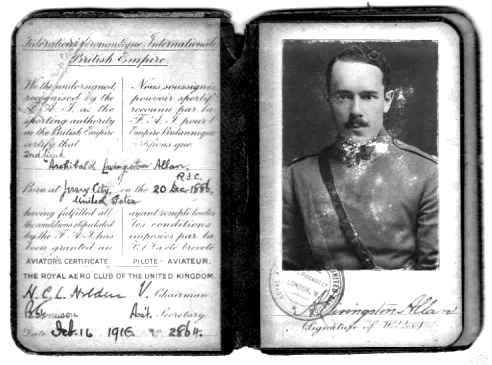 Fédération Aéronautique Internationale
British Empire
We the undersigned, Nous soussignés
recognised by the pouvoir sportif
F. A. I. as the reconnu par la
sporting authority F. A. I. pour l'
in the British Empire Empire Britannique
certify that certifions que
2nd Lieut.
Archibald Livingston Allan
R.F.C.
Born at Jersey City, on the 20 Dec 1886
United States
having fulfilled all ayant rempli toutes
the conditions stipulated les conditions
by the F. A. I. has imposées par la
been granted an F. A. I. a été breveté
AVIATOR'S CERTIFICATE PILOTE-AVIATEUR.
THE ROYAL AERO CLUB OF THE UNITED KINGDOM.
H.C.L. Holden V. Chairman
Asst. Secretary
Date Feb. 16 1916 2864.
A Livingston Allan
Signature of